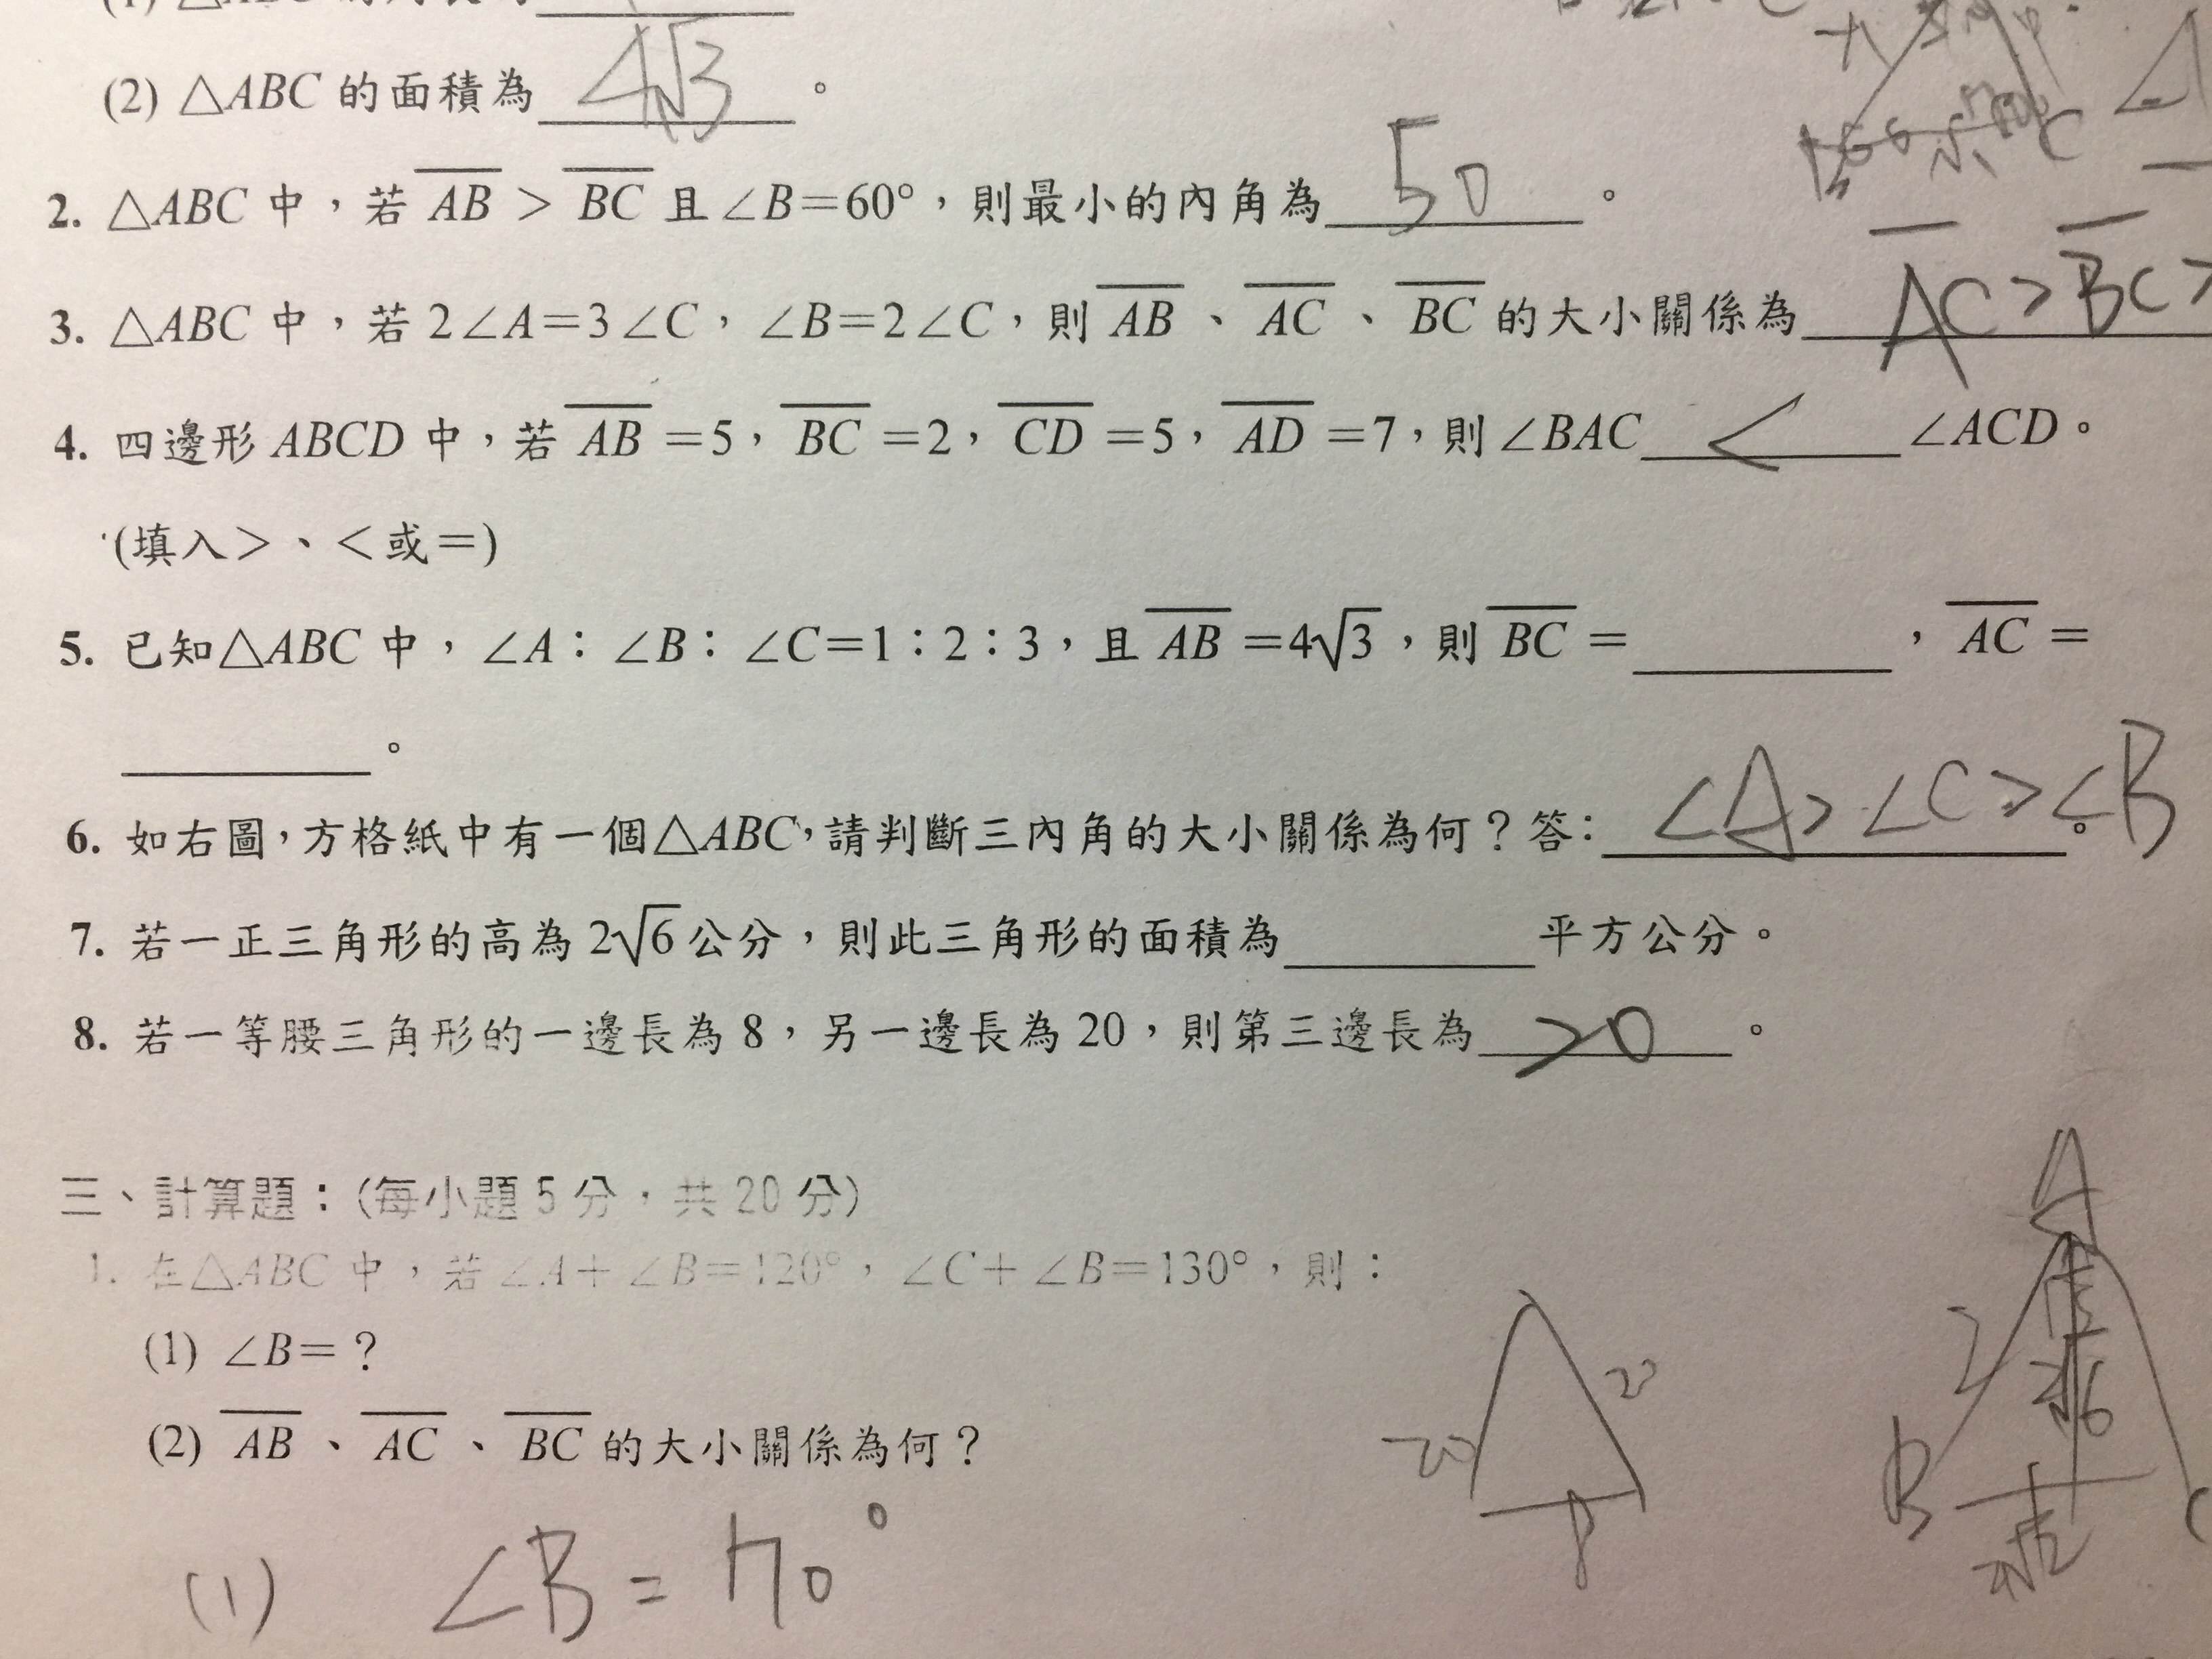 (2) △ABC 的面積為 4√3 。
2. △ABC 中，若 AB > BC 且∠B=60°，則最小的內角為 50 。
3. △ABC 中，若 2∠A=3∠C，∠B=2∠C，則 AB、AC、BC 的大小關係為 AC>BC>
4. 四邊形 ABCD 中，若 AB=5，BC=2，CD=5，AD=7，則∠BAC < ∠ACD。
(填入>、<或=)
5. 已知△ABC 中，∠A：∠B：∠C=1：2：3，且 AB=4√3，則 BC= ，AC=
。
6. 如右圖，方格紙中有一個△ABC，請判斷三內角的大小關係為何？答：∠A>∠C>∠B。
7. 若一正三角形的高為 2√6 公分，則此三角形的面積為 平方公分。
8. 若一等腰三角形的一邊長為 8，另一邊長為 20，則第三邊長為 20 。
三、計算題：(每小題 5 分，共 20 分)
1. 在△ABC 中，若∠A+∠B=120°，∠C+∠B=130°，則：
(1) ∠B=？
(2) AB、AC、BC 的大小關係為何？
(1) ∠B=70°
20 20 8
A
2√6
B
2√2